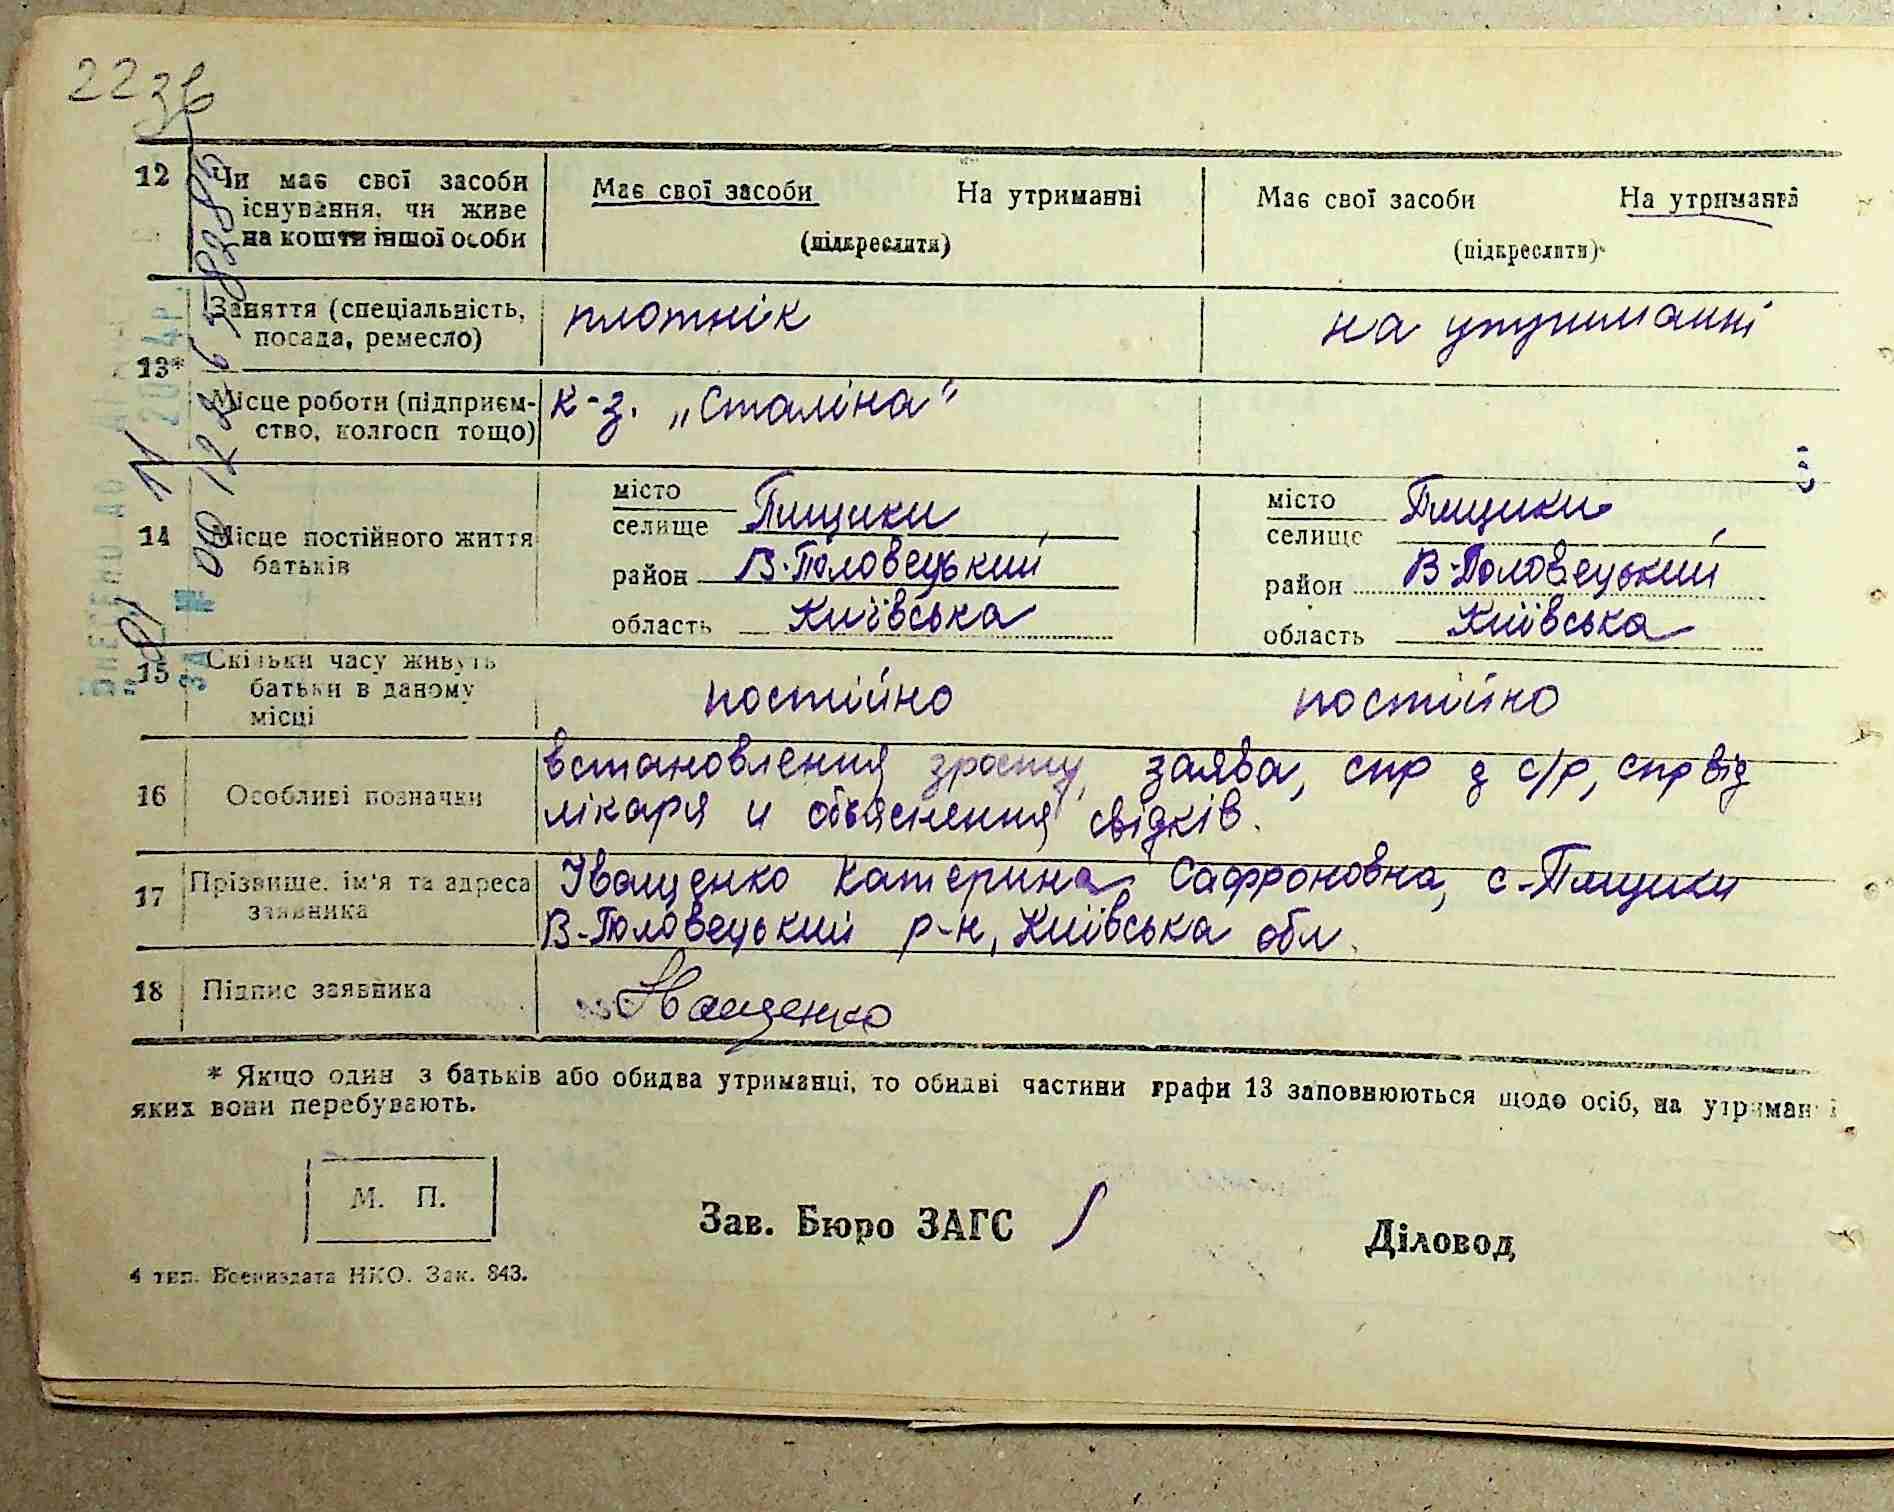 22 зв
12 Чи має свої засоби існування, чи живе на кошти іншої особи
Має свої засоби На утриманні
(підкреслити)
Має свої засоби На утриманні
(підкреслити)
13*
Заняття (спеціальність, посада, ремесло)
плотнік
на утриманні
Місце роботи (підприєм-
ство, колгосп тощо)
к-з. „Сталіна"
14 Місце постійного життя батьків
місто
селище Пищики
район В-Половецький
область Київська
місто
селище Пищики
район В-Половецький
область Київська
15 Скільки часу живуть батьки в даному місці
постійно
постійно
16 Особливі позначки
встановлення зросту, заява, спр з с/р, спр від
лікаря и обьяснення свідків.
17 Прізвище, ім'я та адреса заявника
Іващенко Катерина Сафроновна, с-Пищики
В-Половецький р-н, Київська обл.
18 Підпис заявника
Іващенко
* Якщо один з батьків або обидва утриманці, то обидві частини графи 13 заповнюються щодо осіб, на утриманні
яких вони перебувають.
М. П.
Зав. Бюро ЗАГС
Діловод
4 тип. Воениздата НКО. Зак. 843.